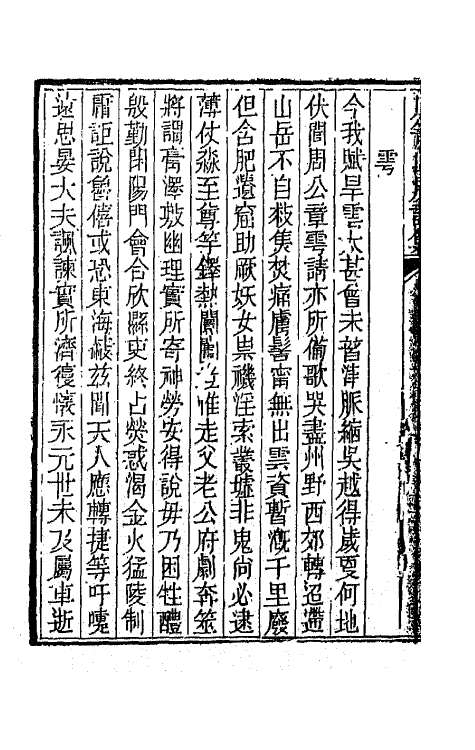 雩
今我賦旱雩太甚曾未暫津脈緬吳越得歲夏何地
伏間周公章雩請亦所備歌哭盡州野西郊轉迢遰
山岳不自救焦焚痛膚髻甯無出雲資暫漑千里廢
但含肥遺窟助厥妖女祟禨淫索叢墟非鬼尚必逮
薄仗淼至尊竽鐸熱闐闐惟走父老公府劇奔筮
將謂膏澤敷幽理實所寄神勞安得說毋乃困牲醴
殷勤閉陽門會合欣縣史終占熒惑渴金火猛陵制
厝詎說魯僖或恐東海蔽茲聞天人應轉捷等吁嚏
遠思晏大夫諷諫實所濟復懷永元世未及屬車逝